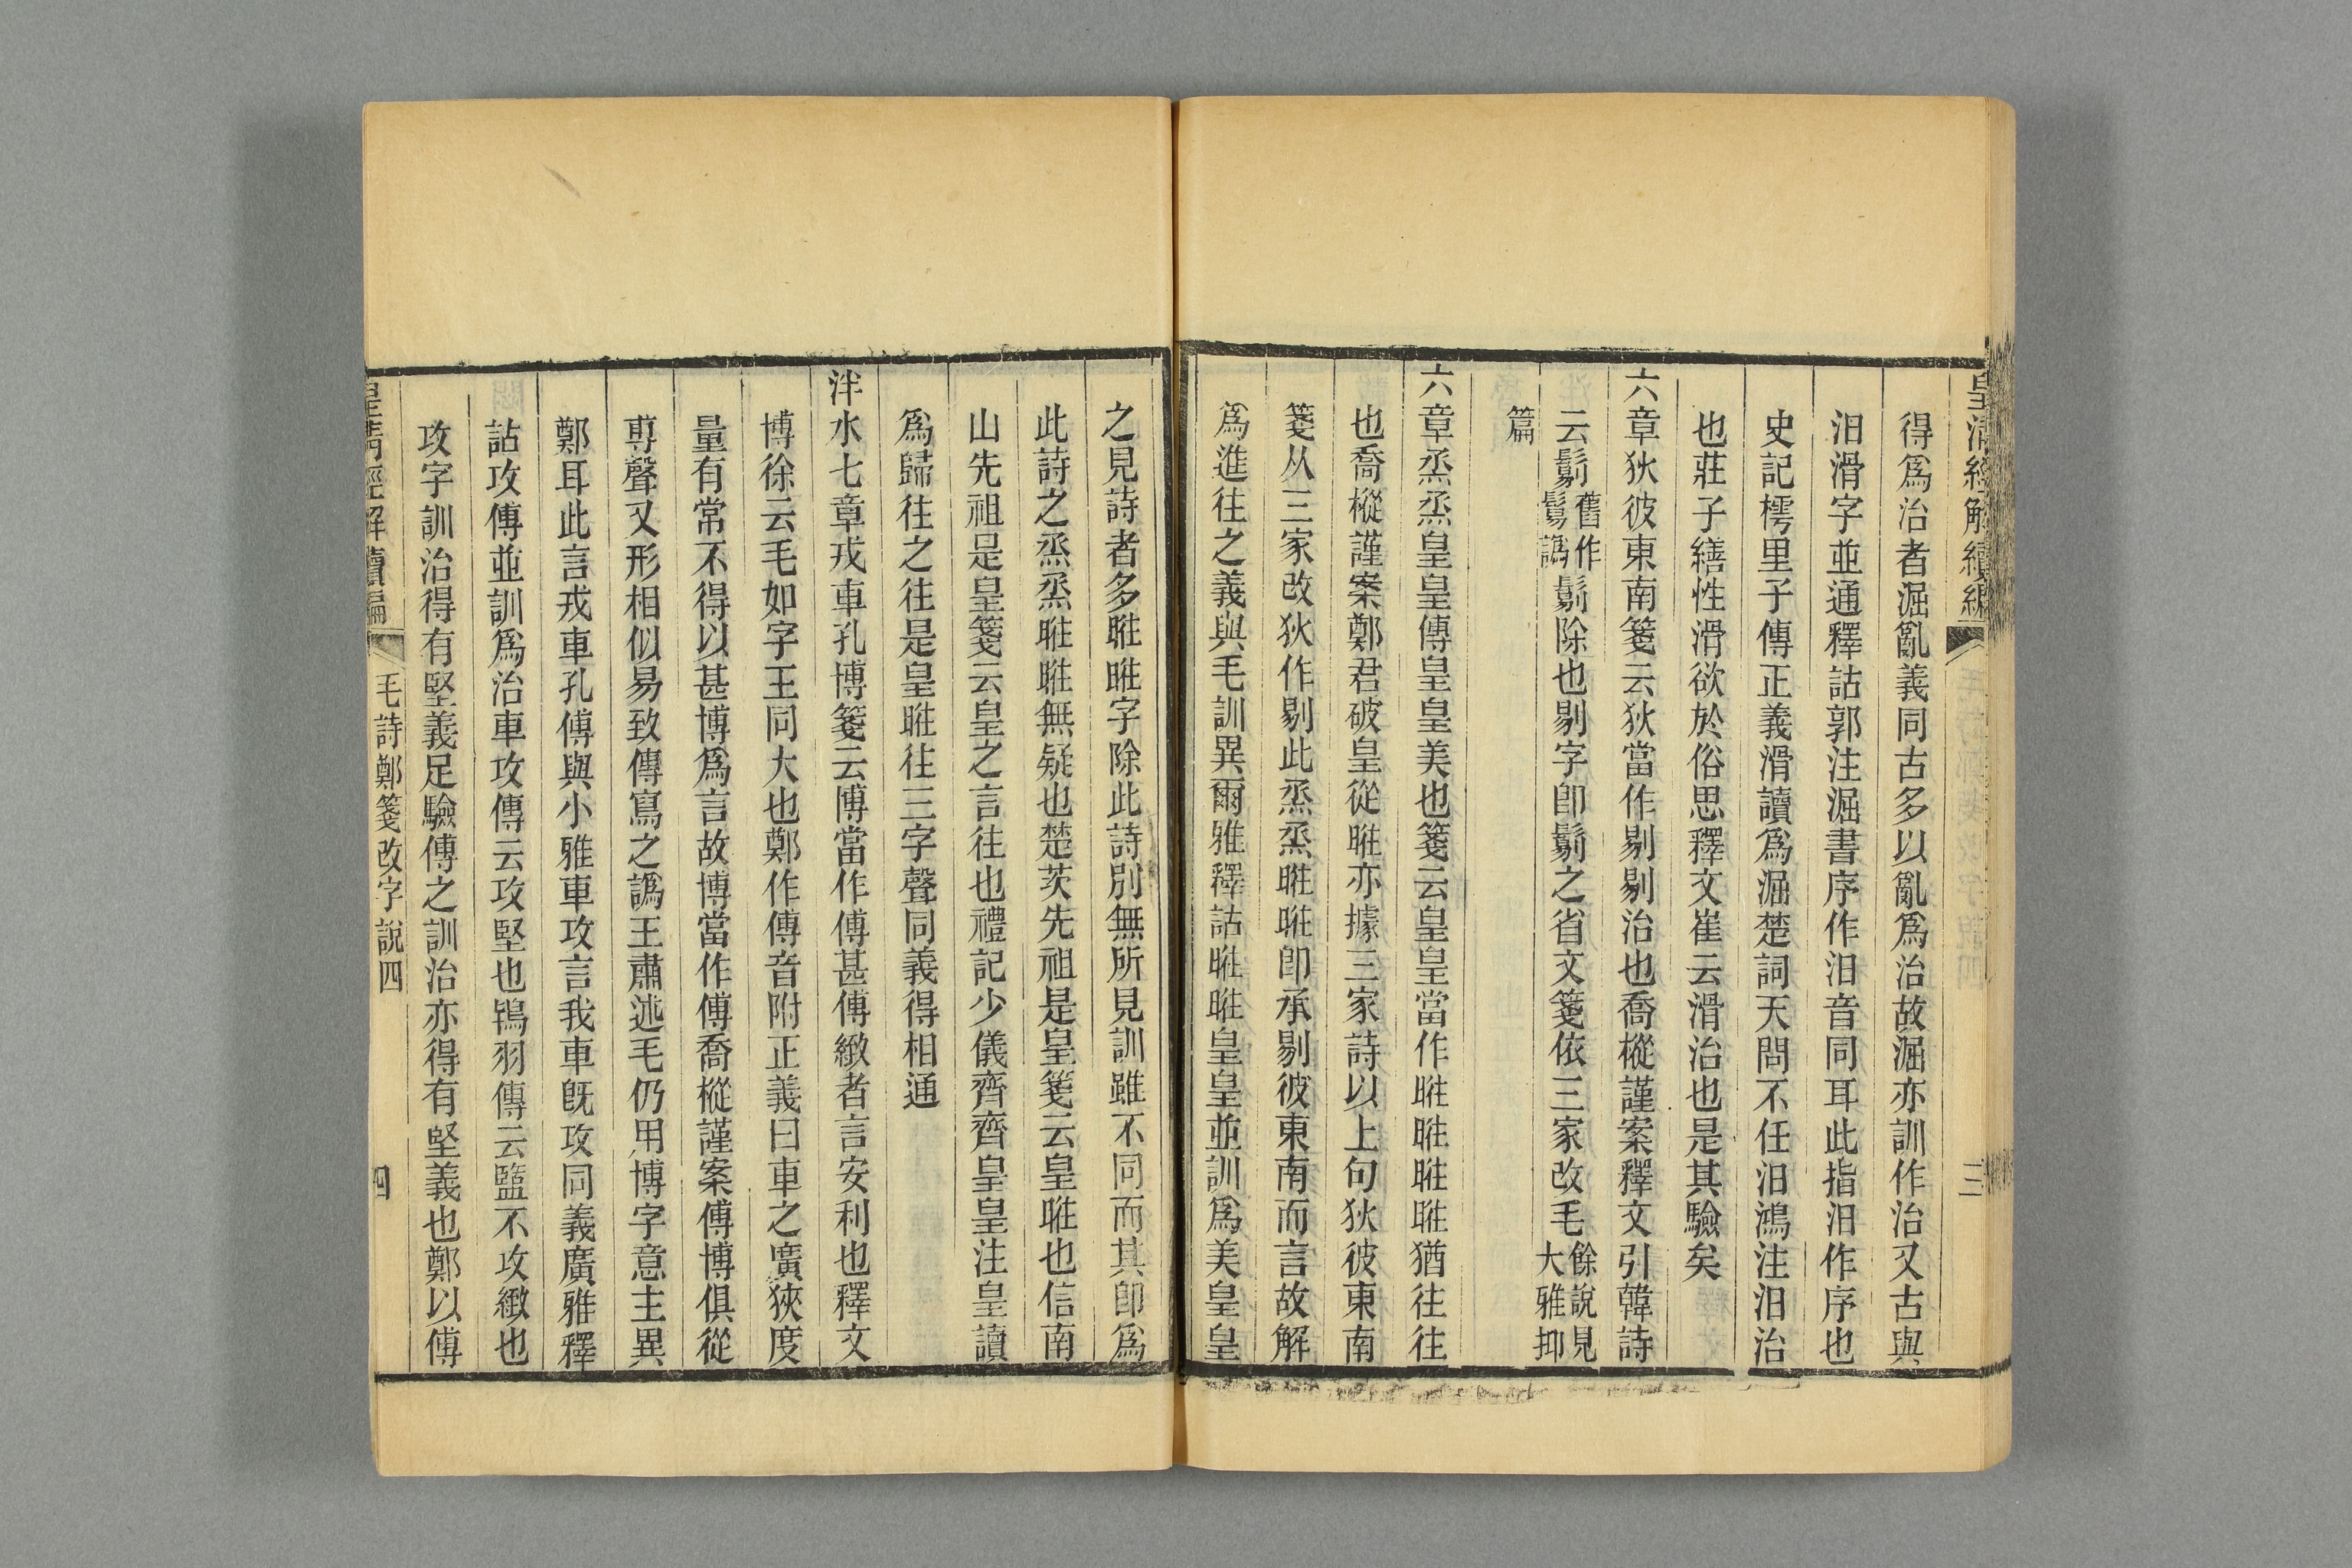 皇清經解續編
三
得爲治者淈亂義同古多以亂爲治故淈亦訓作治又古與
汨滑字並通釋詁郭注淈書序作汨音同耳此指汨作序也
史記樗里子傳正義滑讀爲淈楚詞天問不任汨鴻注汨治
也莊子繕性滑欲於俗思釋文崔云滑治也是其驗矣
六章狄彼東南箋云狄當作剔剔治也喬樅謹案釋文引韓詩
云鬄舊作鬒譌鬄除也剔字卽鬄之省文箋依三家改毛餘說見大雅抑
篇
六章烝烝皇皇傳皇皇美也箋云皇皇當作暀暀暀暀猶往往
也喬樅謹案鄭君破皇從暀亦據三家詩以上句狄彼東南
箋从三家改狄作剔此烝烝暀暀卽承剔彼東南而言故解
爲進往之義與毛訓異爾雅釋詁暀暀皇皇並訓爲美皇皇
之見詩者多暀暀字除此詩別無所見訓雖不同而其卽爲
此詩之烝烝暀暀無疑也楚茨先祖是皇箋云皇暀也信南
山先祖是皇箋云皇之言往也禮記少儀齊齊皇皇注皇讀
爲歸往之往是皇暀往三字聲同義得相通
泮水七章戎車孔博箋云博當作傅甚傅緻者言安利也釋文
博徐云毛如字王同大也鄭作傅音附正義曰車之廣狹度
量有常不得以甚博爲言故博當作傅喬樅謹案傅博俱從
尃聲又形相似易致傳寫之譌王肅述毛仍用博字意主異
鄭耳此言戎車孔傅與小雅車攻言我車旣攻同義廣雅釋
詁攻傅並訓爲治車攻傳云攻堅也鴇羽傳云盬不攻緻也
攻字訓治得有堅義足驗傅之訓治亦得有堅義也鄭以傅
皇清經解續編
毛詩鄭箋改字說四
四